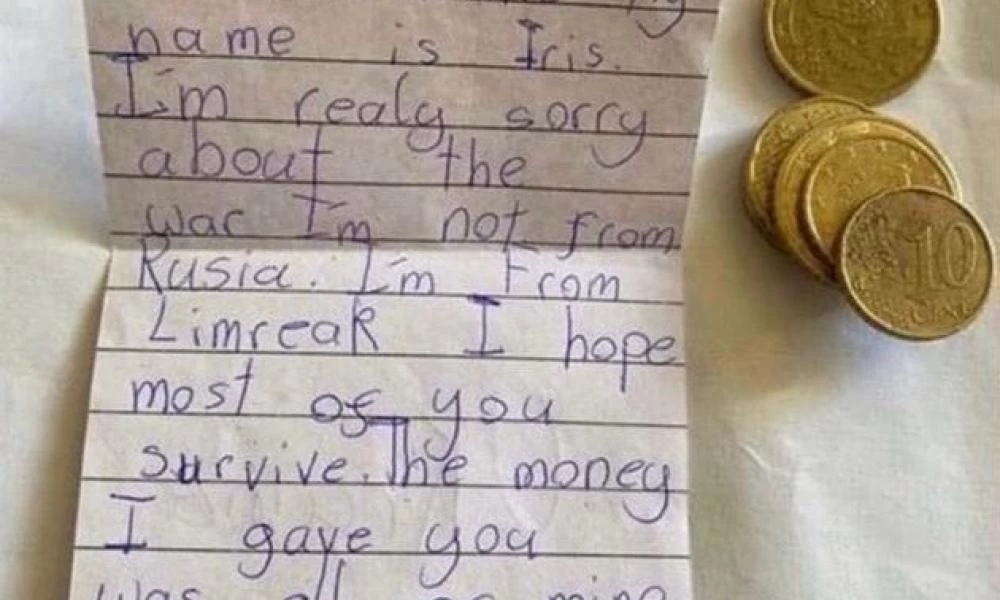 name is Iris.
I'm realy sorry
about the
war I'm not from
Rusia. I'm From
Limreak I hope
most of you
survive. The money
I gave you
was all of mine
10
CENT